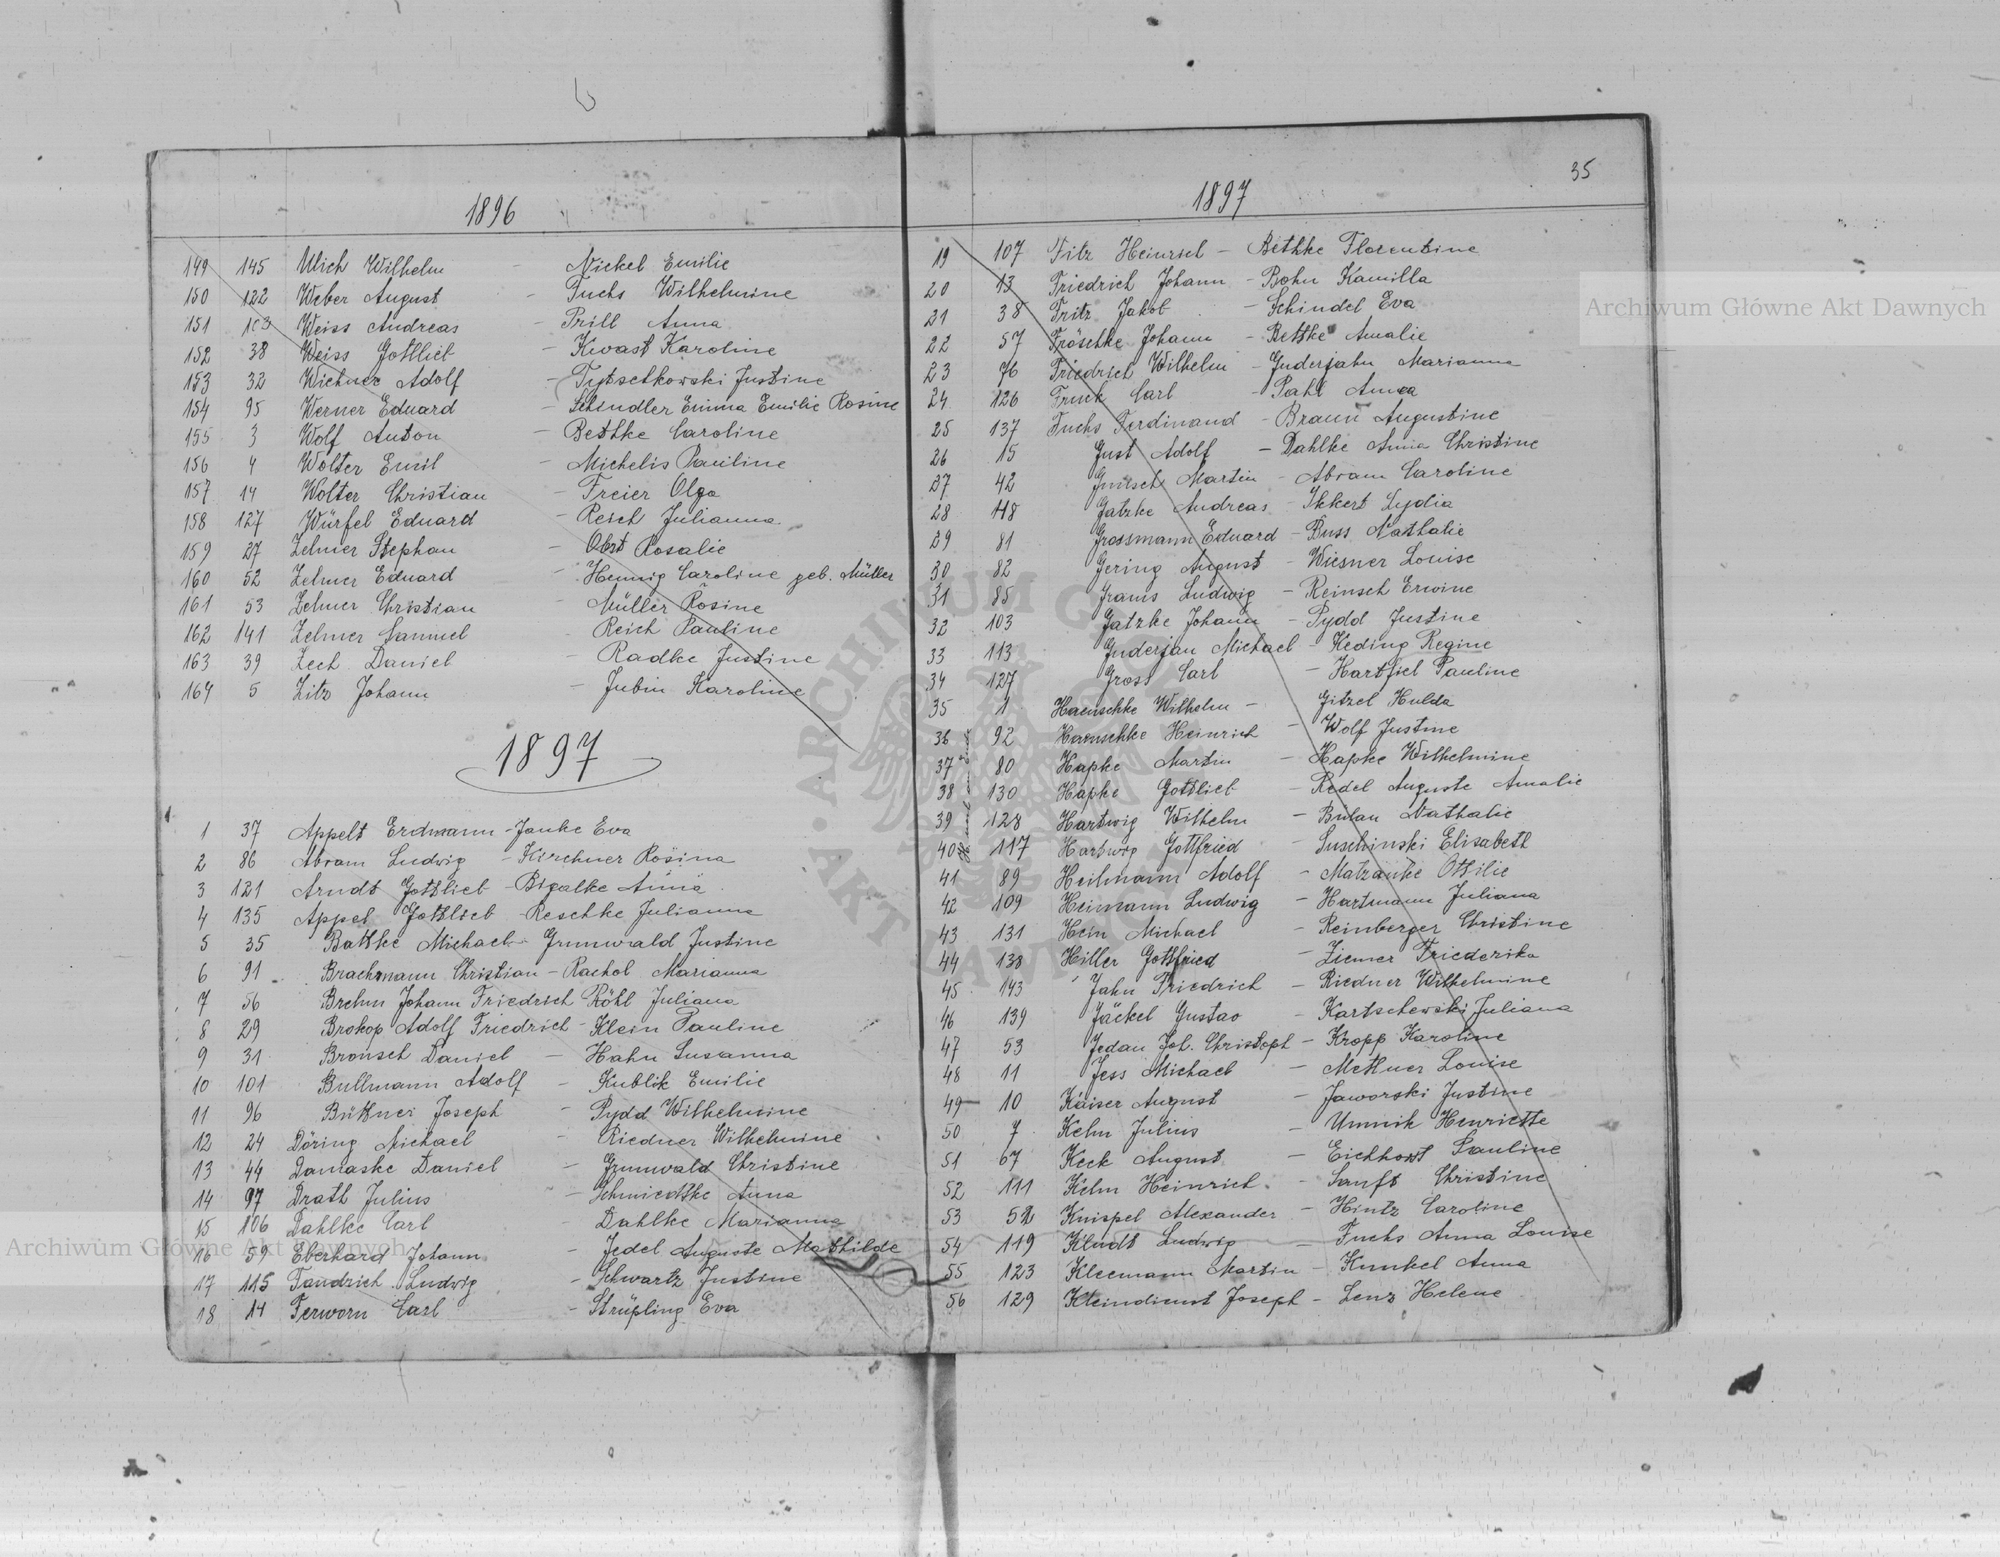 35
1896
149 145 Ulich Wilhelm - Nickel Emilie
150 122 Weber August - Fuchs Wilhelmine
151 103 Weiss Andreas - Prill Anna
152 38 Weiss Gottlieb - Kwast Karoline
153 32 Wichner Adolf - Tytschkowski Justine
154 95 Werner Eduard - Schindler Emma Emilie Rosine
155 3 Wolf Anton - Bethke Caroline
156 4 Wolter Emil - Michelis Pauline
157 14 Wolter Christian - Freier Olga
158 127 Würfel Eduard - Reich Julianna
159 27 Zelmer Stephan - Obst Rosalie
160 52 Zelmer Eduard - Hennig Caroline geb. Müller
161 53 Zelmer Christian - Müller Rosine
162 141 Zelmer Samuel - Reich Pauline
163 39 Zech Daniel - Radke Justine
164 5 Zitz Johann - Jubin Karoline
1897
1 37 Appelt Erdmann - Janke Eva
2 86 Abram Ludwig - Kirchner Rosina
3 121 Arndt Gottlieb - Bigalke Anna
4 135 Appel Gottlieb - Reschke Julianna
5 35 Batzke Michael - Grunwald Justine
6 91 Brachmann Christian - Rachol Marianna
7 56 Brehm Johann Friedrich Röhl Juliana
8 29 Brokop Adolf Friedrich - Klein Pauline
9 31 Bronsch Daniel - Hahn Susanna
10 101 Bullmann Adolf - Kublik Emilie
11 96 Büttner Joseph - Pydd Wilhelmine
12 24 Döring Michael - Riedner Wilhelmine
13 44 Damaske Daniel - Grunwald Christine
14 97 Drath Julius - Schmiedtke Anna
15 106 Dahlke Carl - Dahlke Marianna
16 59 Eberhard Johann - Jedel Auguste Mathilde
17 115 Fandrich Ludwig - Schwartz Justine
18 14 Ferworn Carl - Strüpling Eva
1897
19 107 Fitz Heinrich - Bethke Florentine
20 13 Friedrich Johann - Bohn Kamilla
21 38 Fritz Jakob - Schindel Eva
22 57 Fröschke Johann - Bethke Amalie
23 76 Friedrich Wilhelm - Guderjahn Marianna
24 126 Frick Carl - Pahl Anna
25 137 Fuchs Ferdinand - Braun Augustine
26 15 Just Adolf - Dahlke Anna Christine
27 42 Martin - Abram Caroline
28 118 Gatzke Andreas - Ikkert Lydia
29 81 Grossmann Eduard - Buss Nathalie
30 82 Gering August - Wiesner Louise
31 85 Grams Ludwig - Reinsch Erwine
32 103 Gatzke Johann - Pydd Justine
33 113 Guderjan Michael - Heding Regine
34 127 Gross Carl - Hartfiel Pauline
35 1 Haenschke Wilhelm - Gitzel Hulda
36 92 Haenschke Heinrich - Wolf Justine
37 80 Hapke Martin - Hapke Wilhelmine
38 130 Hapke Gottlieb - Redel Auguste Amalie
39 128 Hartwig Wilhelm - Bulan Nathalie
40 117 Hartwig Gottfried - Suschinski Elisabeth
41 89 Heilmann Adolf - Matzanke Ottilie
42 109 Heimann Ludwig - Hartmann Juliana
43 131 Hein Michael - Reinberger Christine
44 138 Hiller Gottfried - Ziemer Friederika
45 143 Jahn Friedrich - Riedner Wilhelmine
46 139 Jäckel Gustav - Kartschewski Juliana
47 53 Jedan Joh. Christoph - Kropp Karoline
48 11 Jess Michael - Methner Louise
49 10 Kaiser August - Jaworski Justine
50 7 Kelm Julius - Ummik Henriette
51 67 Keck August - Eichhorst Pauline
52 111 Kelm Heinrich - Sanft Christine
53 52 Knispel Alexander - Hintz Caroline
54 119 Kludt Ludwig - Fuchs Anna Louise
55 123 Kleemann Martin - Kunkel Anna
56 129 Kleindienst Joseph - Lenz Helene
Archiwum Główne Akt Dawnych
Archiwum Główne Akt Dawnych
ARCHIWUM GŁÓWNE AKT DAWNYCH